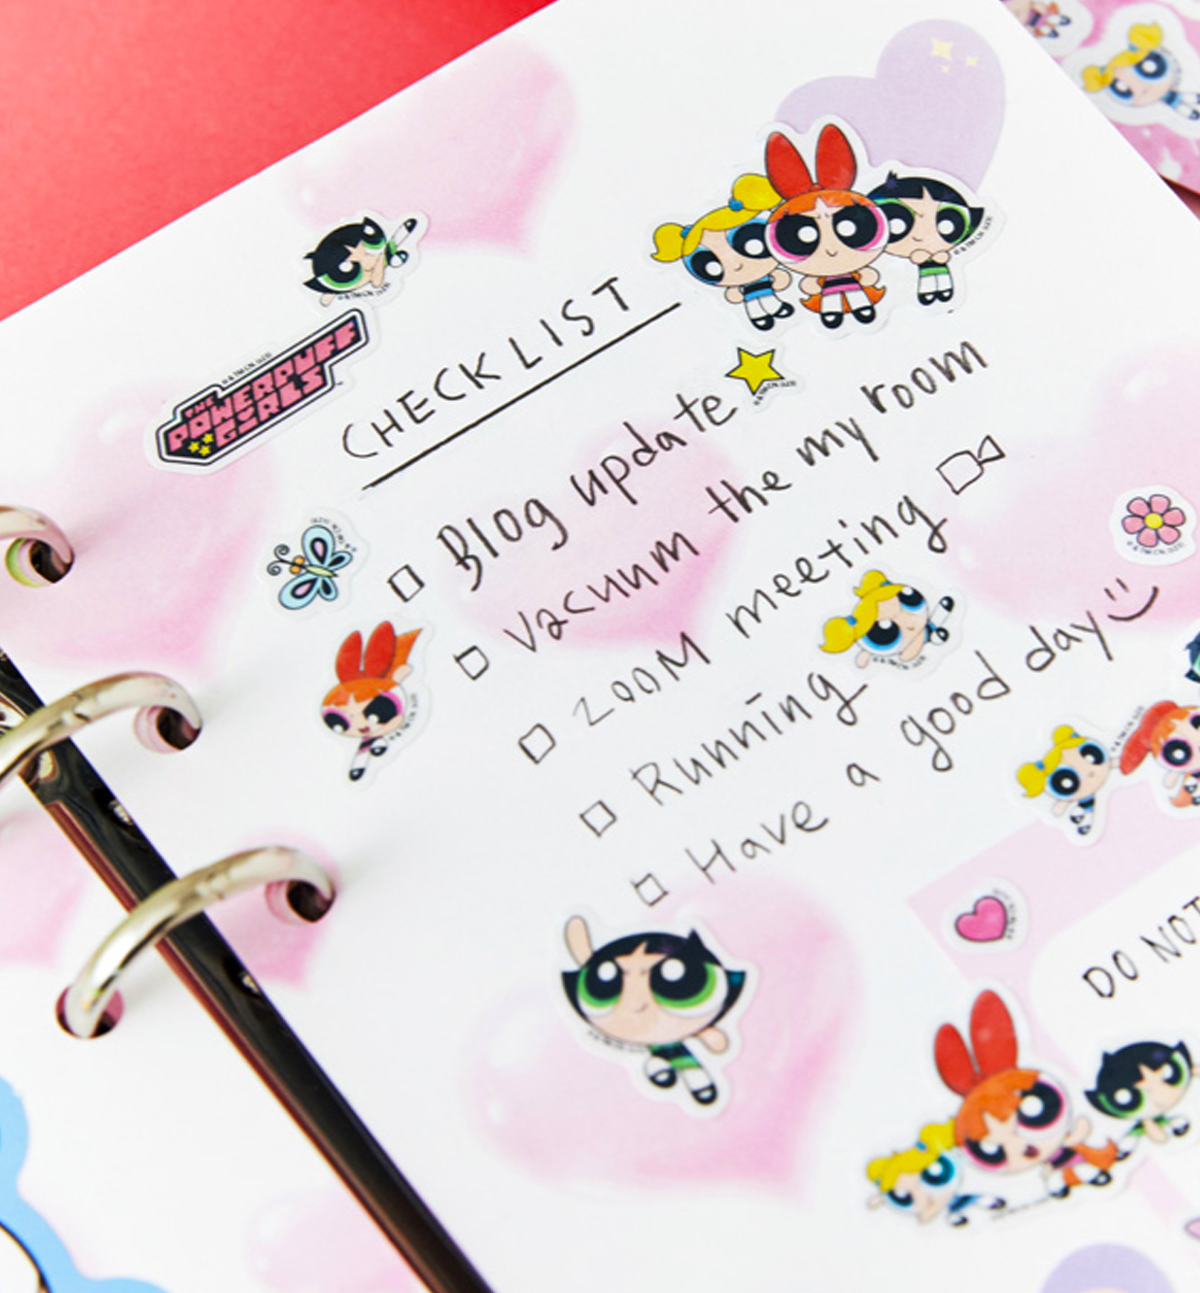 THE
POWERPUFF
GIRLS
CHECKLIST
Blog update
Vacuum the my room
ZOOM meeting
Running
Have a good day
DO NOT